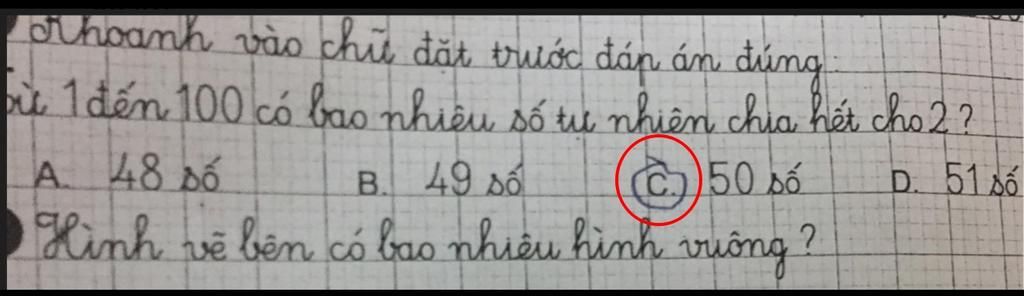 Khoanh vào chữ đặt trước đáp án đúng.
Từ 1 đến 100 có bao nhiêu số tự nhiên chia hết cho 2?
A. 48 số B. 49 số C. 50 số D. 51 số
Hình vẽ bên có bao nhiêu hình vuông?